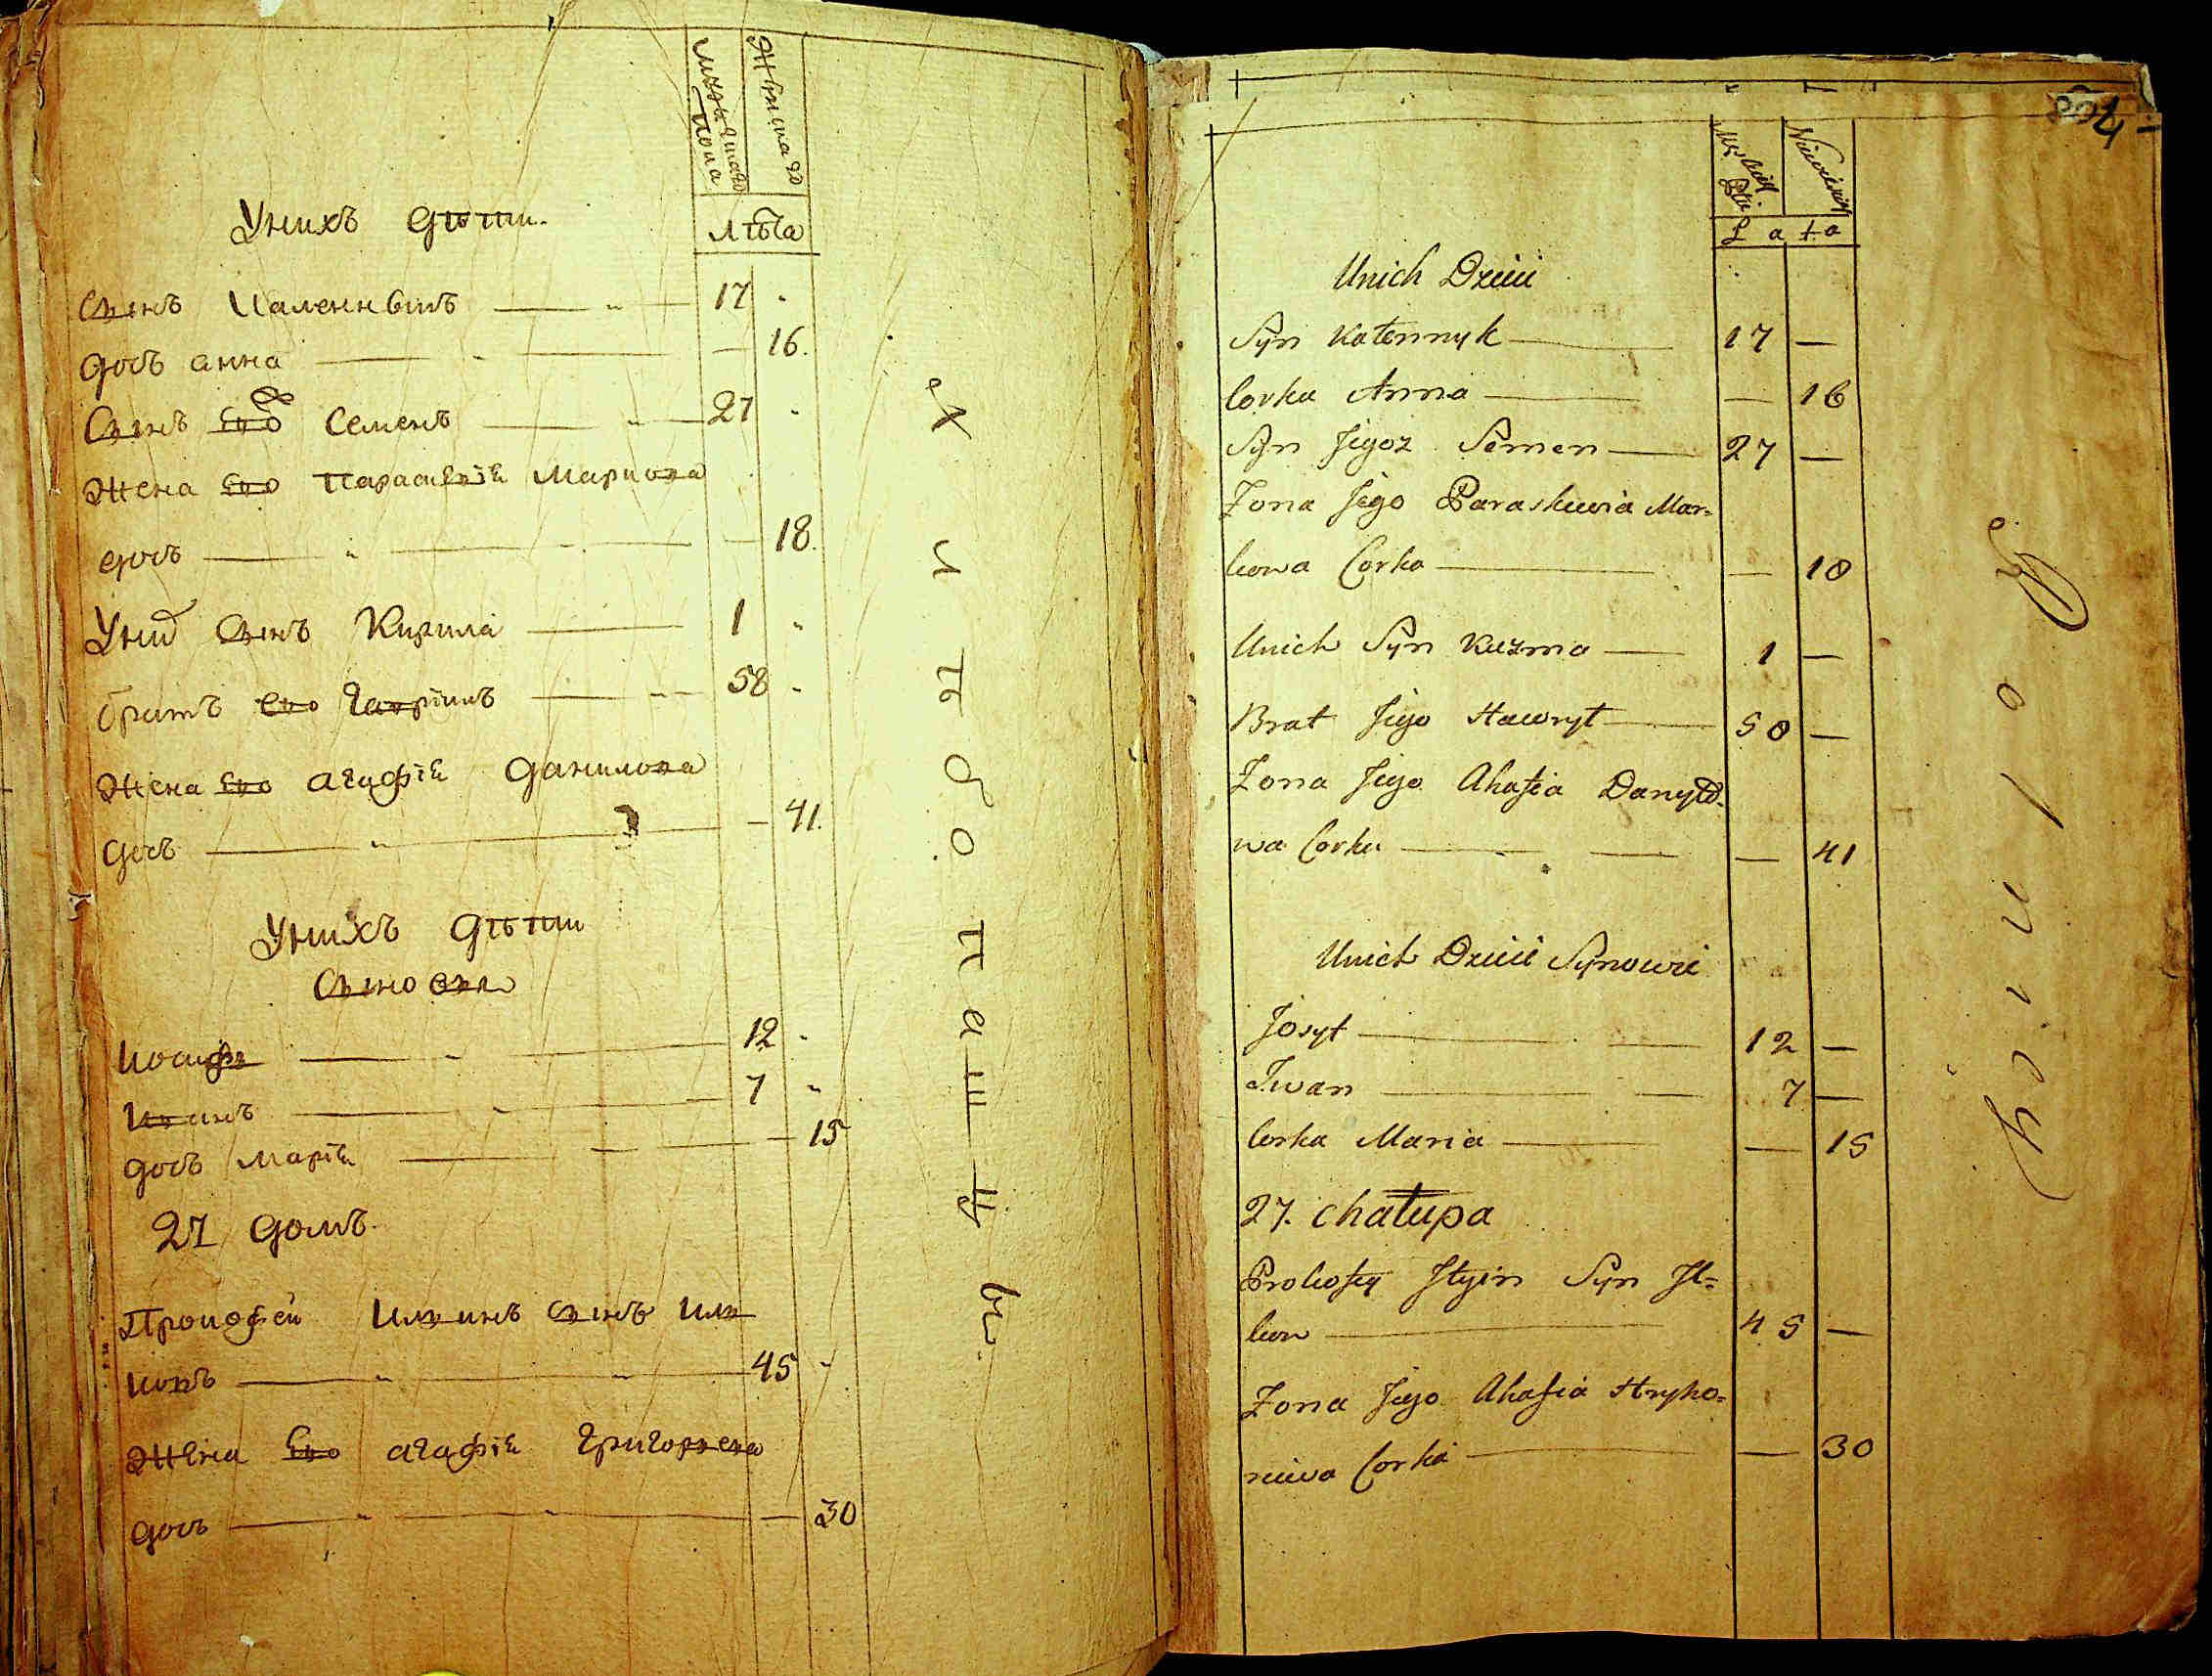 мужеска
пола
женска
лѣта
Унихъ дѣти
Сынъ Каленникъ 17
дочь анна — 16.
Сынъ его Семенъ 27
Жена его Параскевія Маркова
дочь — 18.
Уних Сынъ Кирила 1
братъ его Гавріилъ 58
Жена его агафія данилова
дочь — 41.
Унихъ дѣти
Сыновья
Иосифъ 12
Иванъ 7
дочь марія — 15
27 домъ
Прокофей Ильинъ сынъ Иль
ковъ 45
Жена его агафія григорьева
дочь — 30
хлѣбопашцы
Męskiej
Płci
Niewieściej
Lata
Unich Dzieci
Syn Kalennyk 17 —
Corka Anna — 16
Syn Jegoz Semen 27 —
Zona Jego Paraskewia Mar=
kowa Corka — 18
Unich Syn Kuzma 1 —
Brat Jego Hawrył 58 —
Zona Jego Ahafia Danyło=
wa Corka — 41
Unich Dzieci Synowie
Josyf 12 —
Iwan 7 —
Corka Maria — 15
27. Chałupa
Prokofey Ilyin Syn Il=
kow 45 —
Zona Jego Ahafia Hryho=
riewa Corka — 30
Rolnicy